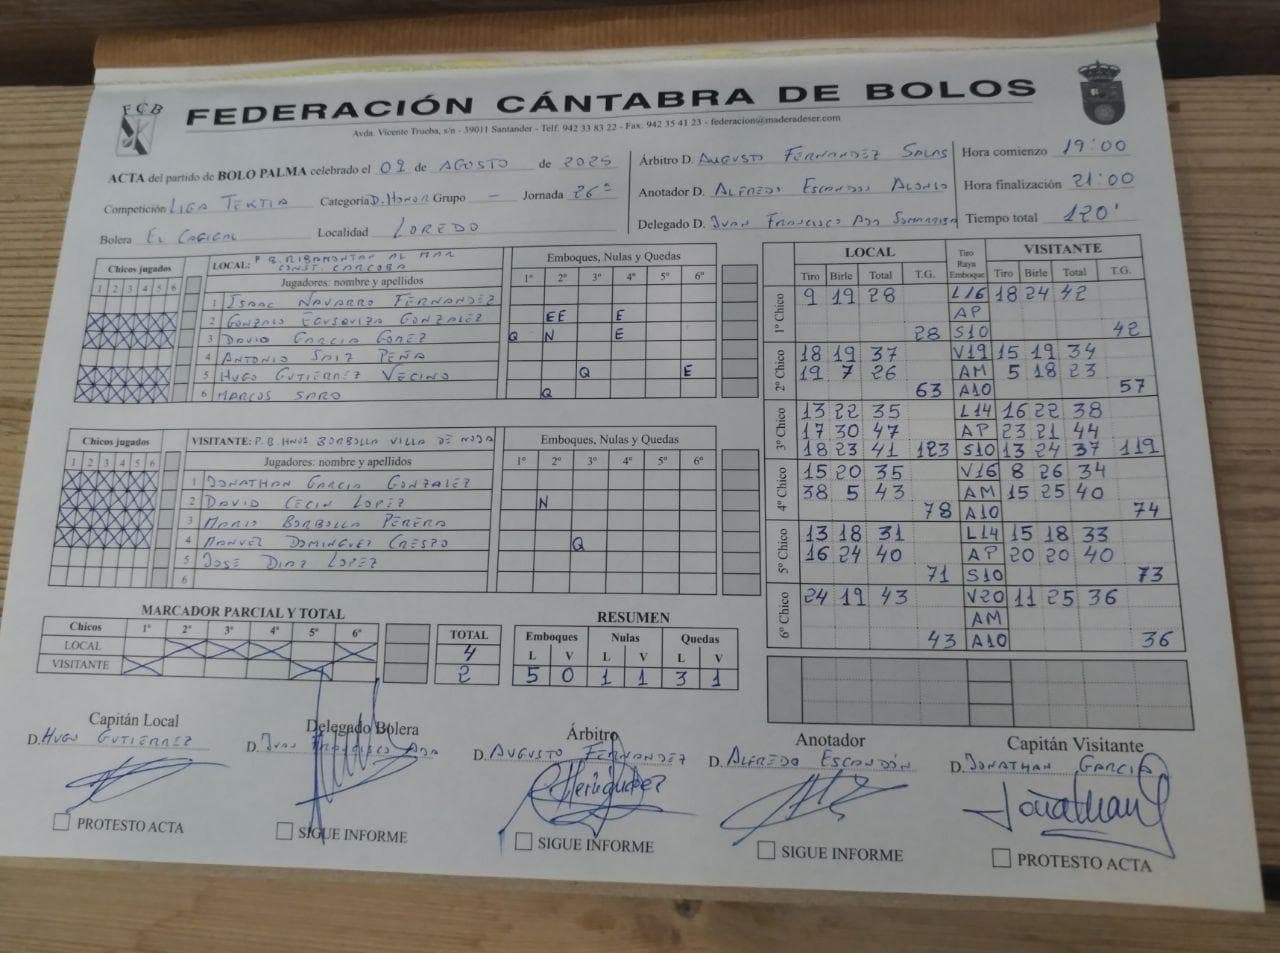 FCB
FEDERACIÓN CÁNTABRA DE BOLOS
Avda. Vicente Trueba, s/n - 39011 Santander - Telf. 942 33 83 22 - Fax: 942 35 41 23 - federacion@maderadeser.com
ACTA del partido de BOLO PALMA celebrado el 09 de AGOSTO de 2025
Competición LIGA TEKTIA Categoría D. HONOR Grupo - Jornada 26ª
Bolera EL CAGIGAL Localidad LOREDO
Árbitro D. AUGUSTO FERNANDEZ SALAS
Anotador D. ALFREDO ESCANDON ALONSO
Delegado D. JUAN FRANCISCO ADA
Hora comienzo 19:00
Hora finalización 21:00
Tiempo total 120'
Chicos jugados
1 2 3 4 5 6
LOCAL: P.B. RIBAMONTAN AL MAR
CONST. CARCOBA
Jugadores: nombre y apellidos
Emboques, Nulas y Quedas
1º 2º 3º 4º 5º 6º
1 ISAAC NAVARRO FERNANDEZ
2 GONZALO EGUSQUIZA GONZALEZ EE E
3 DAVID GARCIA GOMEZ Q N E
4 ANTONIO SAIZ PEÑA
5 HUGO GUTIERREZ VECINO Q E
6 MARCOS SARO Q
Chicos jugados
1 2 3 4 5 6
VISITANTE: P.B. HNOS BORBOLLA VILLA DE NOJA
Jugadores: nombre y apellidos
Emboques, Nulas y Quedas
1º 2º 3º 4º 5º 6º
1 JONATHAN GARCIA GONZALEZ
2 DAVID CECIN LOPEZ N
3 MARIO BORBOLLA PERERA
4 MANUEL DOMINGUEZ CRESPO Q
5 JOSE DIAZ LOPEZ
6
MARCADOR PARCIAL Y TOTAL
Chicos 1º 2º 3º 4º 5º 6º TOTAL
LOCAL 4
VISITANTE 2
RESUMEN
Emboques Nulas Quedas
L V L V L V
5 0 1 1 3 1
LOCAL Tiro Raya Emboque VISITANTE
Tiro Birle Total T.G. Tiro Birle Total T.G.
1º Chico
9 19 28 L16 18 24 42
AP
28 S10 42
2º Chico
18 19 37 V19 15 19 34
19 7 26 AM 5 18 23
63 A10 57
3º Chico
13 22 35 L14 16 22 38
17 30 47 AP 23 21 44
18 23 41 123 S10 13 24 37 119
4º Chico
15 20 35 V16 8 26 34
38 5 43 AM 15 25 40
78 A10 74
5º Chico
13 18 31 L14 15 18 33
16 24 40 AP 20 20 40
71 S10 73
6º Chico
24 19 43 V20 11 25 36
AM
43 A10 36
Capitán Local
D. HUGO GUTIERREZ
PROTESTO ACTA
Delegado Bolera
D. JUAN FRANCISCO ADA
SIGUE INFORME
Árbitro
D. AUGUSTO FERNANDEZ
SIGUE INFORME
Anotador
D. ALFREDO ESCANDÓN
SIGUE INFORME
Capitán Visitante
D. JONATHAN GARCIA
Jonathan
PROTESTO ACTA